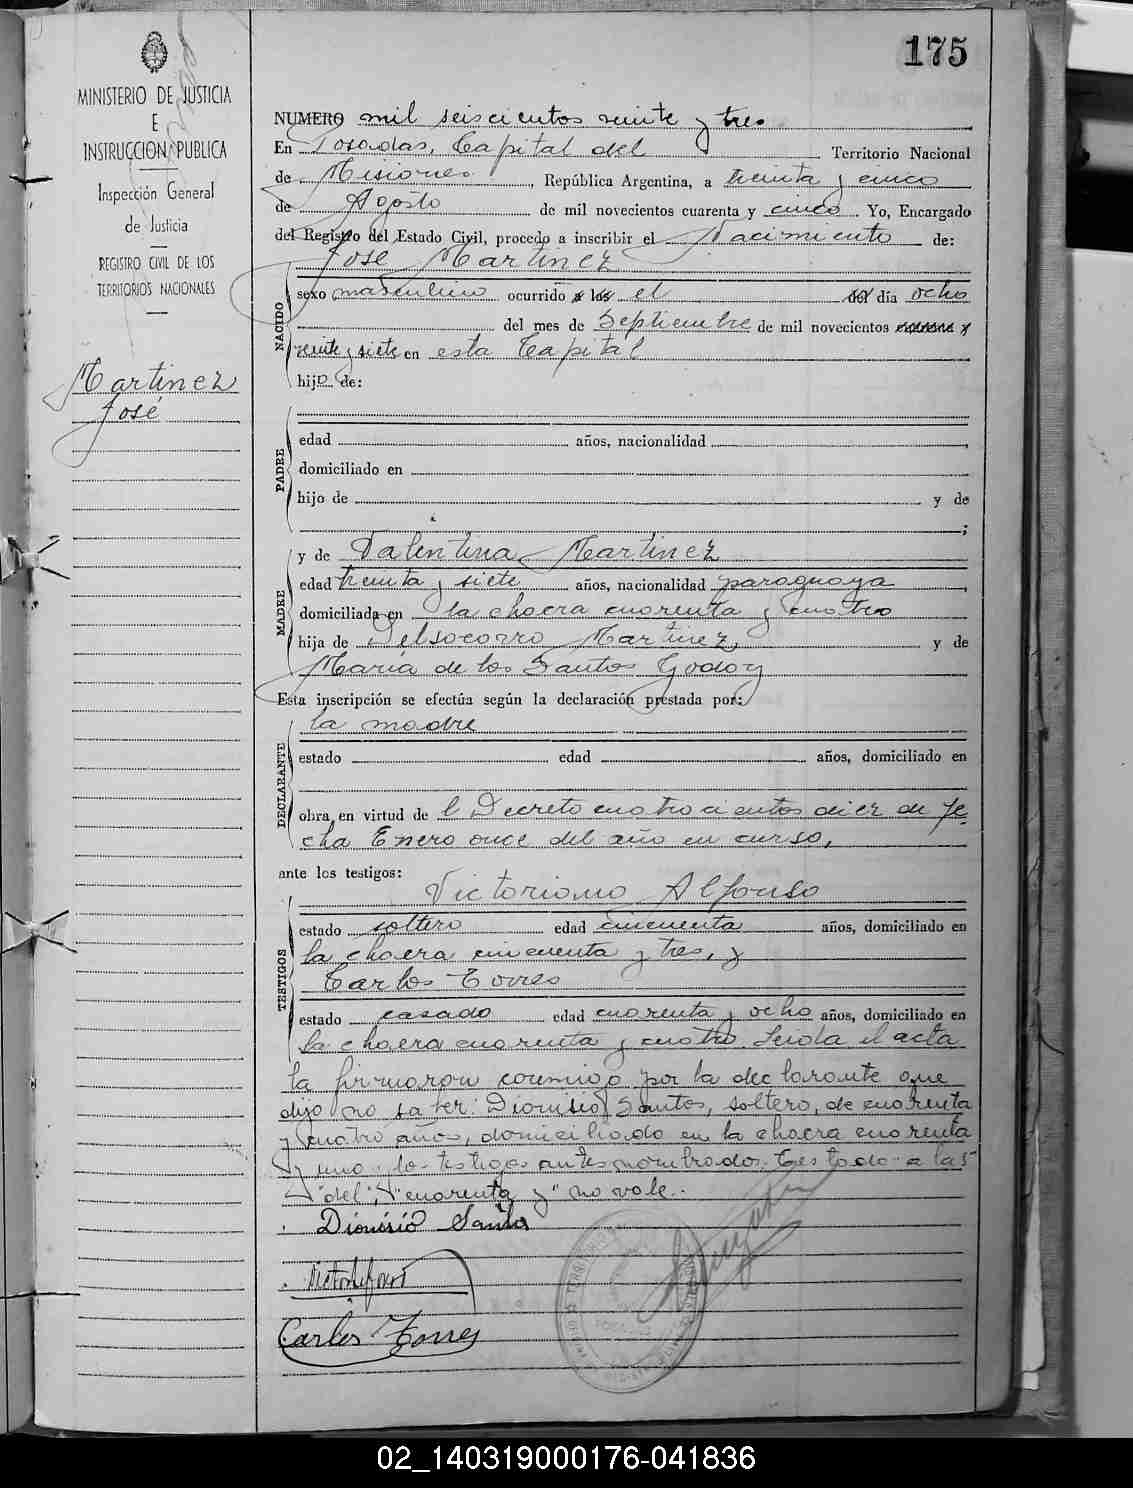 175
MINISTERIO DE JUSTICIA
E
INSTRUCCION PUBLICA
Inspección General
de Justicia
REGISTRO CIVIL DE LOS
TERRITORIOS NACIONALES
Martinez
José
NUMERO mil seiscientos veinte y tres
En Posadas, Capital del Territorio Nacional
de Misiones, República Argentina, a treinta y cinco
de Agosto de mil novecientos cuarenta y cinco. Yo, Encargado
del Registro del Estado Civil, procedo a inscribir el Nacimiento de:
José Martinez
NACIDO
sexo masculino ocurrido a las el del día ocho
del mes de Septiembre de mil novecientos
veinte y siete en esta Capital
hijo de:
PADRE
edad años, nacionalidad
domiciliado en
hijo de y de
;
MADRE
y de Valentina Martinez
edad treinta y siete años, nacionalidad paraguaya
domiciliada en la chacra cuarenta y cuatro
hija de Delsocorro Martinez, y de
María de los Santos Godoy
Esta inscripción se efectúa según la declaración prestada por:
DECLARANTE
la madre
estado edad años, domiciliado en
obra en virtud de l Decreto cuatrocientos diez de fe-
cha Enero once del año en curso,
ante los testigos:
TESTIGOS
Victoriano Alfonso
estado soltero edad cincuenta años, domiciliado en
la chacra cincuenta y tres, y
Carlos Torres
estado casado edad cuarenta y ocho años, domiciliado en
la chacra cuarenta y cuatro. Leida el acta
la firmaron conmigo por la declarante que
dijo no saber: Dionisio Santos, soltero, de cuarenta
y cuatro años, domiciliado en la chacra cuarenta
y uno los testigos antes nombrados. Testado "a las"
"del", "cuarenta y" no vale.
Dionisio Santos
Carlos Torres
02_140319000176-041836